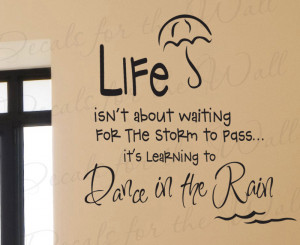 LIFE
isn't about waiting
FOR THE STORM TO PASS...
it's LEARNING TO
Dance in the Rain
Decals for the Wall